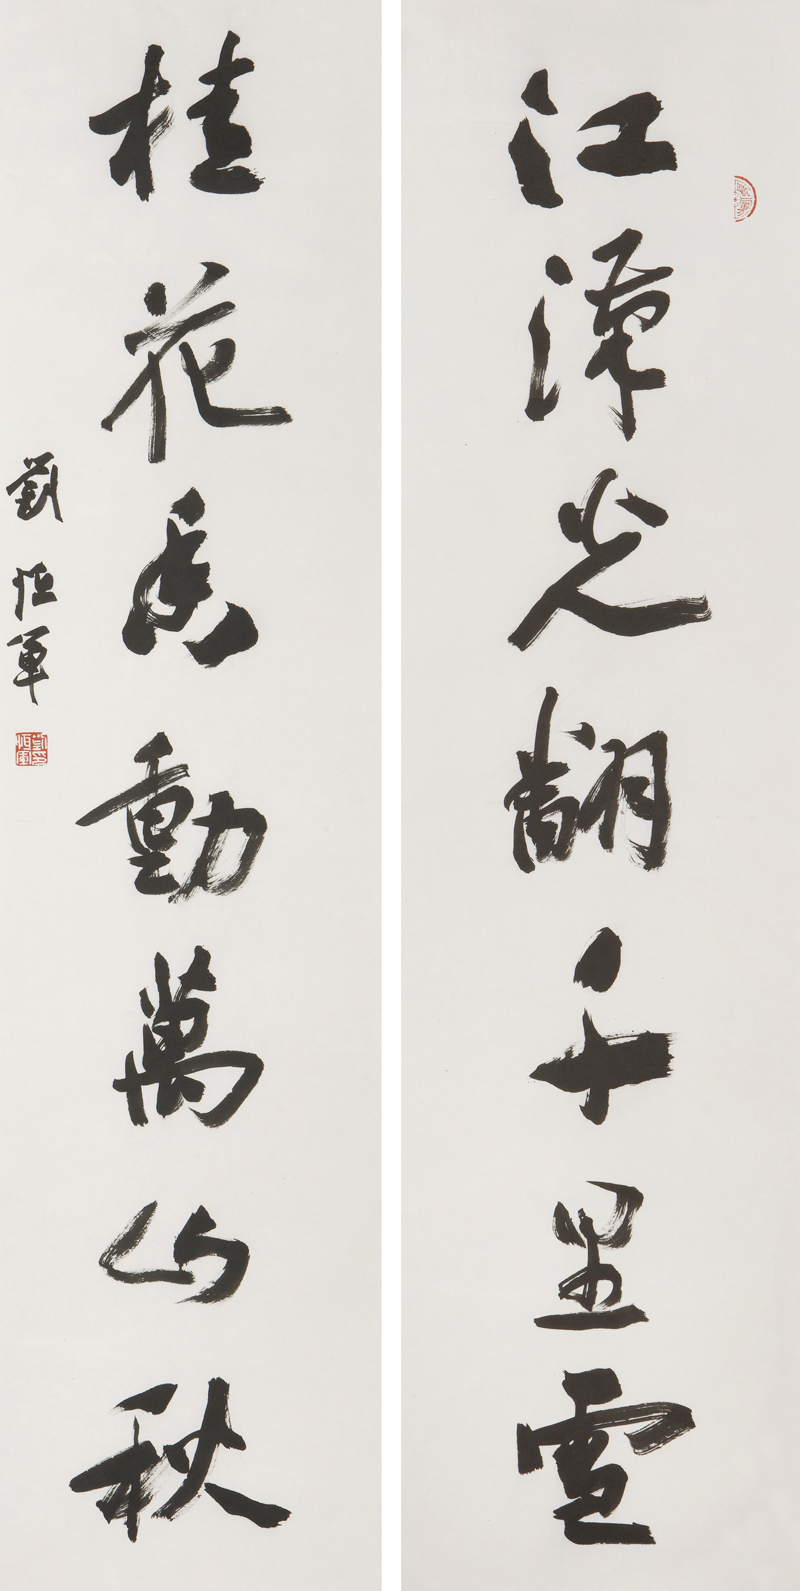 江潭光翻千里雪
桂花香動萬山秋
劉恒軍